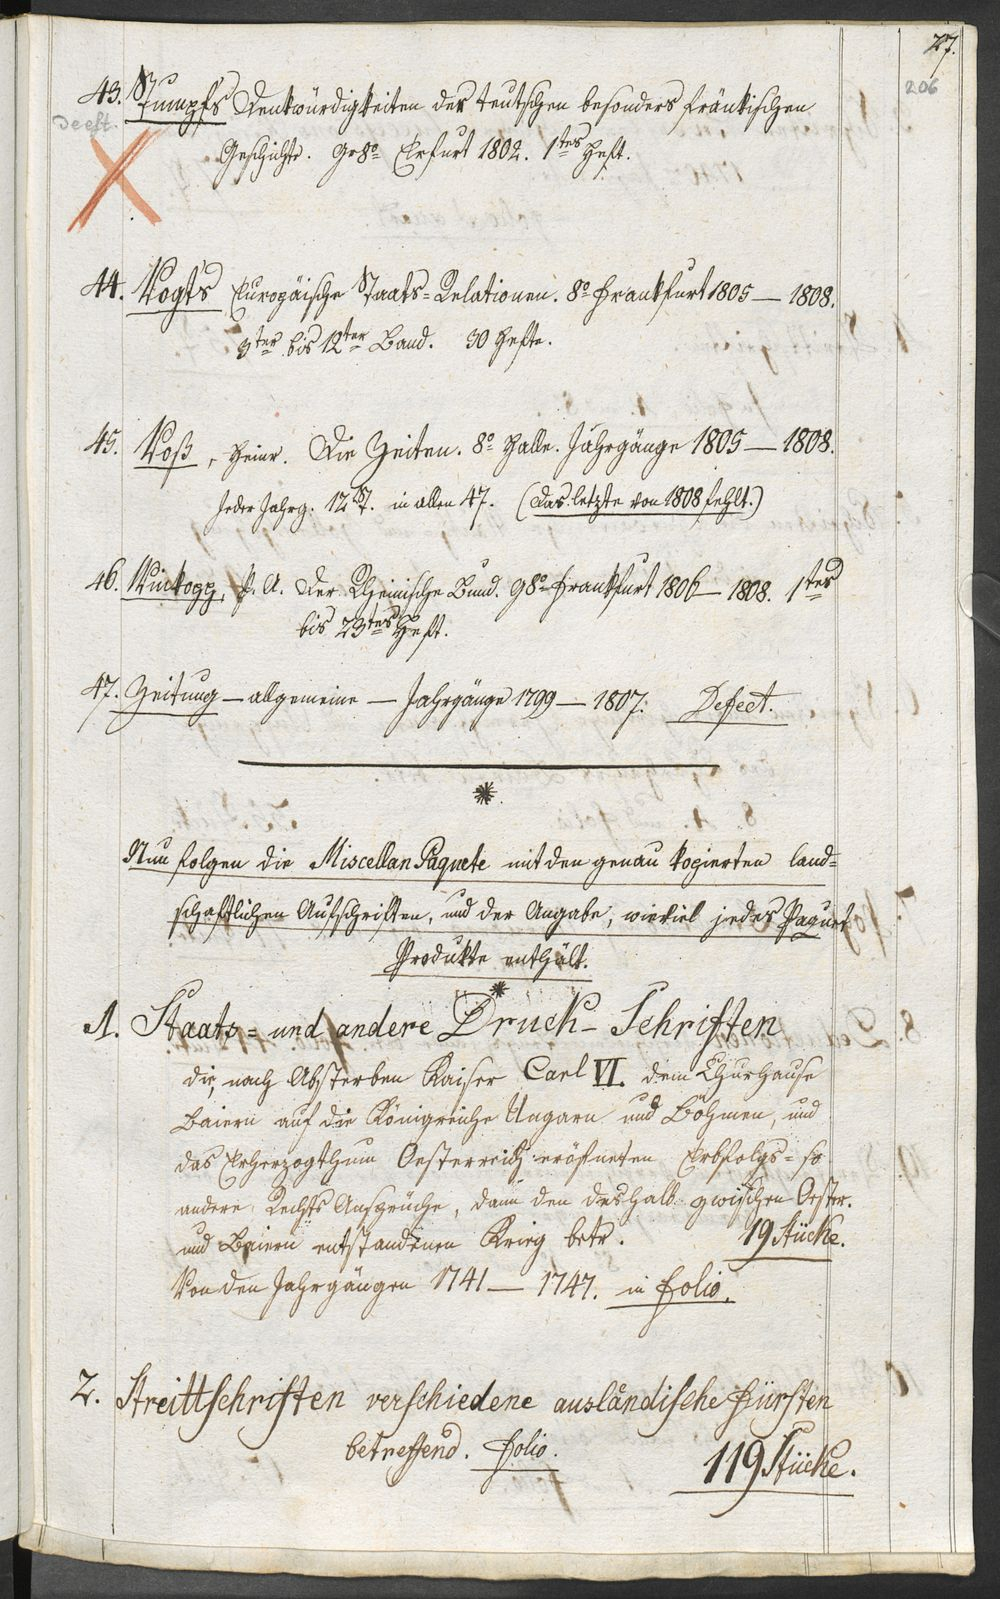 27.
206
43. Stumpfs Denkwürdigkeiten der teutschen besonders fränkischen
Deest.
Geschichte. gr 8o Erfurt 1802. 1tes Heft.
44. Vogts Europäische Staats=Relationen. 8o Frankfurt 1805 — 1808.
3ter bis 12ter Band. 30 Hefte.
45. Voß, Heinr. Die Zeiten. 8o Halle. Jahrgänge 1805 — 1808.
Jeder Jahrg. 12 St. in allen 47. (das letzte von 1808 fehlt.)
46. Winkopp, P. A. Der Rheinische Bund. g 8o Frankfurt 1806 — 1808. 1tes
bis 23tes Heft.
47. Zeitung — allgemeine — Jahrgänge 1799 — 1807. Defect.
Nun folgen die Miscellan Paquete mit den genau kopierten land=
schaftlichen Aufschriften, und der Angabe, wieviel jedes Paquet
Produkte enthält.
1. Staats= und andere Druck-Schriften
die, nach Absterben Kaiser Carl VI. dem Churhause
Baiern auf die Königreiche Ungarn und Böhmen, und
das Erherzogthum Oesterreich eröfneten Erbfolgs= so
andere Rechts Ansprüche, dann den deshalb zwischen Oester.
und Baiern entstandenen Krieg betr. 19 Stücke.
Von den Jahrgängen 1741 — 1747. in Folio.
2. Streittschriften verschiedene ausländische Fürsten
betreffend. Folio. 119 Stücke.